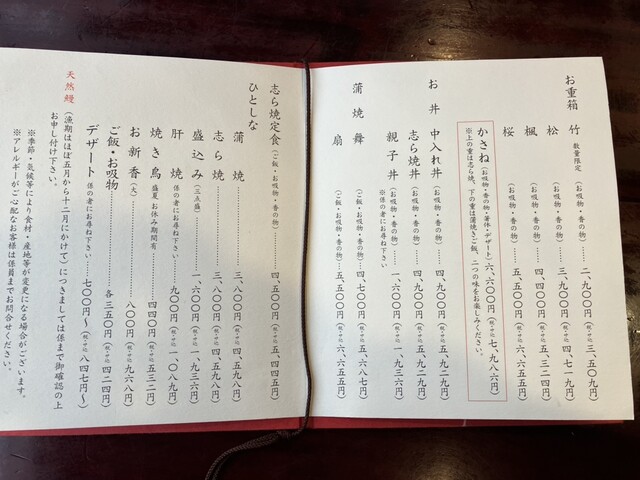 お重箱 竹 数量限定 ………… 二、九〇〇円(税・サ込 三、五〇九円)
松(お吸物・香の物)…… 三、九〇〇円(税・サ込 四、七一九円)
楓(お吸物・香の物)…… 四、四〇〇円(税・サ込 五、三二四円)
桜(お吸物・香の物)…… 五、五〇〇円(税・サ込 六、六五五円)
かさね(お吸物・香の物・箸休・デザート)六、六〇〇円(税・サ込 七、九八六円)
※上の重は志ら焼、下の重は蒲焼きご飯、二つの味をお楽しみください。
お丼 中入れ丼(お吸物・香の物)…… 四、九〇〇円(税・サ込 五、九二九円)
志ら焼丼(お吸物・香の物)…… 四、九〇〇円(税・サ込 五、九二九円)
親子丼(お吸物・香の物)…… 一、六〇〇円(税・サ込 一、九三六円)
※係の者にお尋ね下さい
蒲焼 舞(ご飯・お吸物・香の物)…… 四、七〇〇円(税・サ込 五、六八七円)
扇(ご飯・お吸物・香の物)…… 五、五〇〇円(税・サ込 六、六五五円)
志ら焼定食(ご飯・お吸物・香の物)…… 四、五〇〇円(税・サ込 五、四四五円)
ひとしな
蒲焼 ………… 三、八〇〇円(税・サ込 四、五九八円)
志ら焼 ………… 三、八〇〇円(税・サ込 四、五九八円)
盛込み(三点盛)………… 一、六〇〇円(税・サ込 一、九三六円)
肝焼 係の者にお尋ね下さい …… 九〇〇円(税・サ込 一、〇八九円)
焼き鳥 盛夏 お休み期間有 …… 四四〇円(税・サ込 五三二円)
お新香(大)………… 八〇〇円(税・サ込 九六八円)
ご飯・お吸物 ………… 各三五〇円(税・サ込 四二四円)
デザート 係の者にお尋ね下さい …… 七〇〇円〜(税・サ込 八四七円〜)
天然鰻(漁期はほぼ五月から十二月にかけて)につきましては係まで御確認の上
お申し付け下さい。
※季節・気候等により食材・産地等が変更になる場合がございます。
※アレルギーがご心配なお客様は係員までお問合せください。